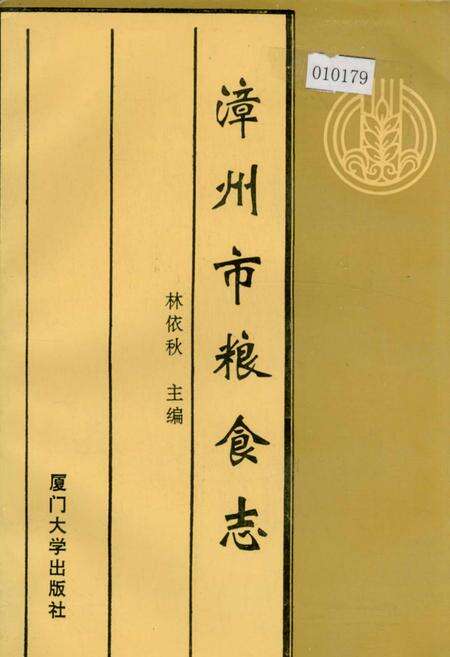 010179
漳州市粮食志
林依秋 主编
厦门大学出版社